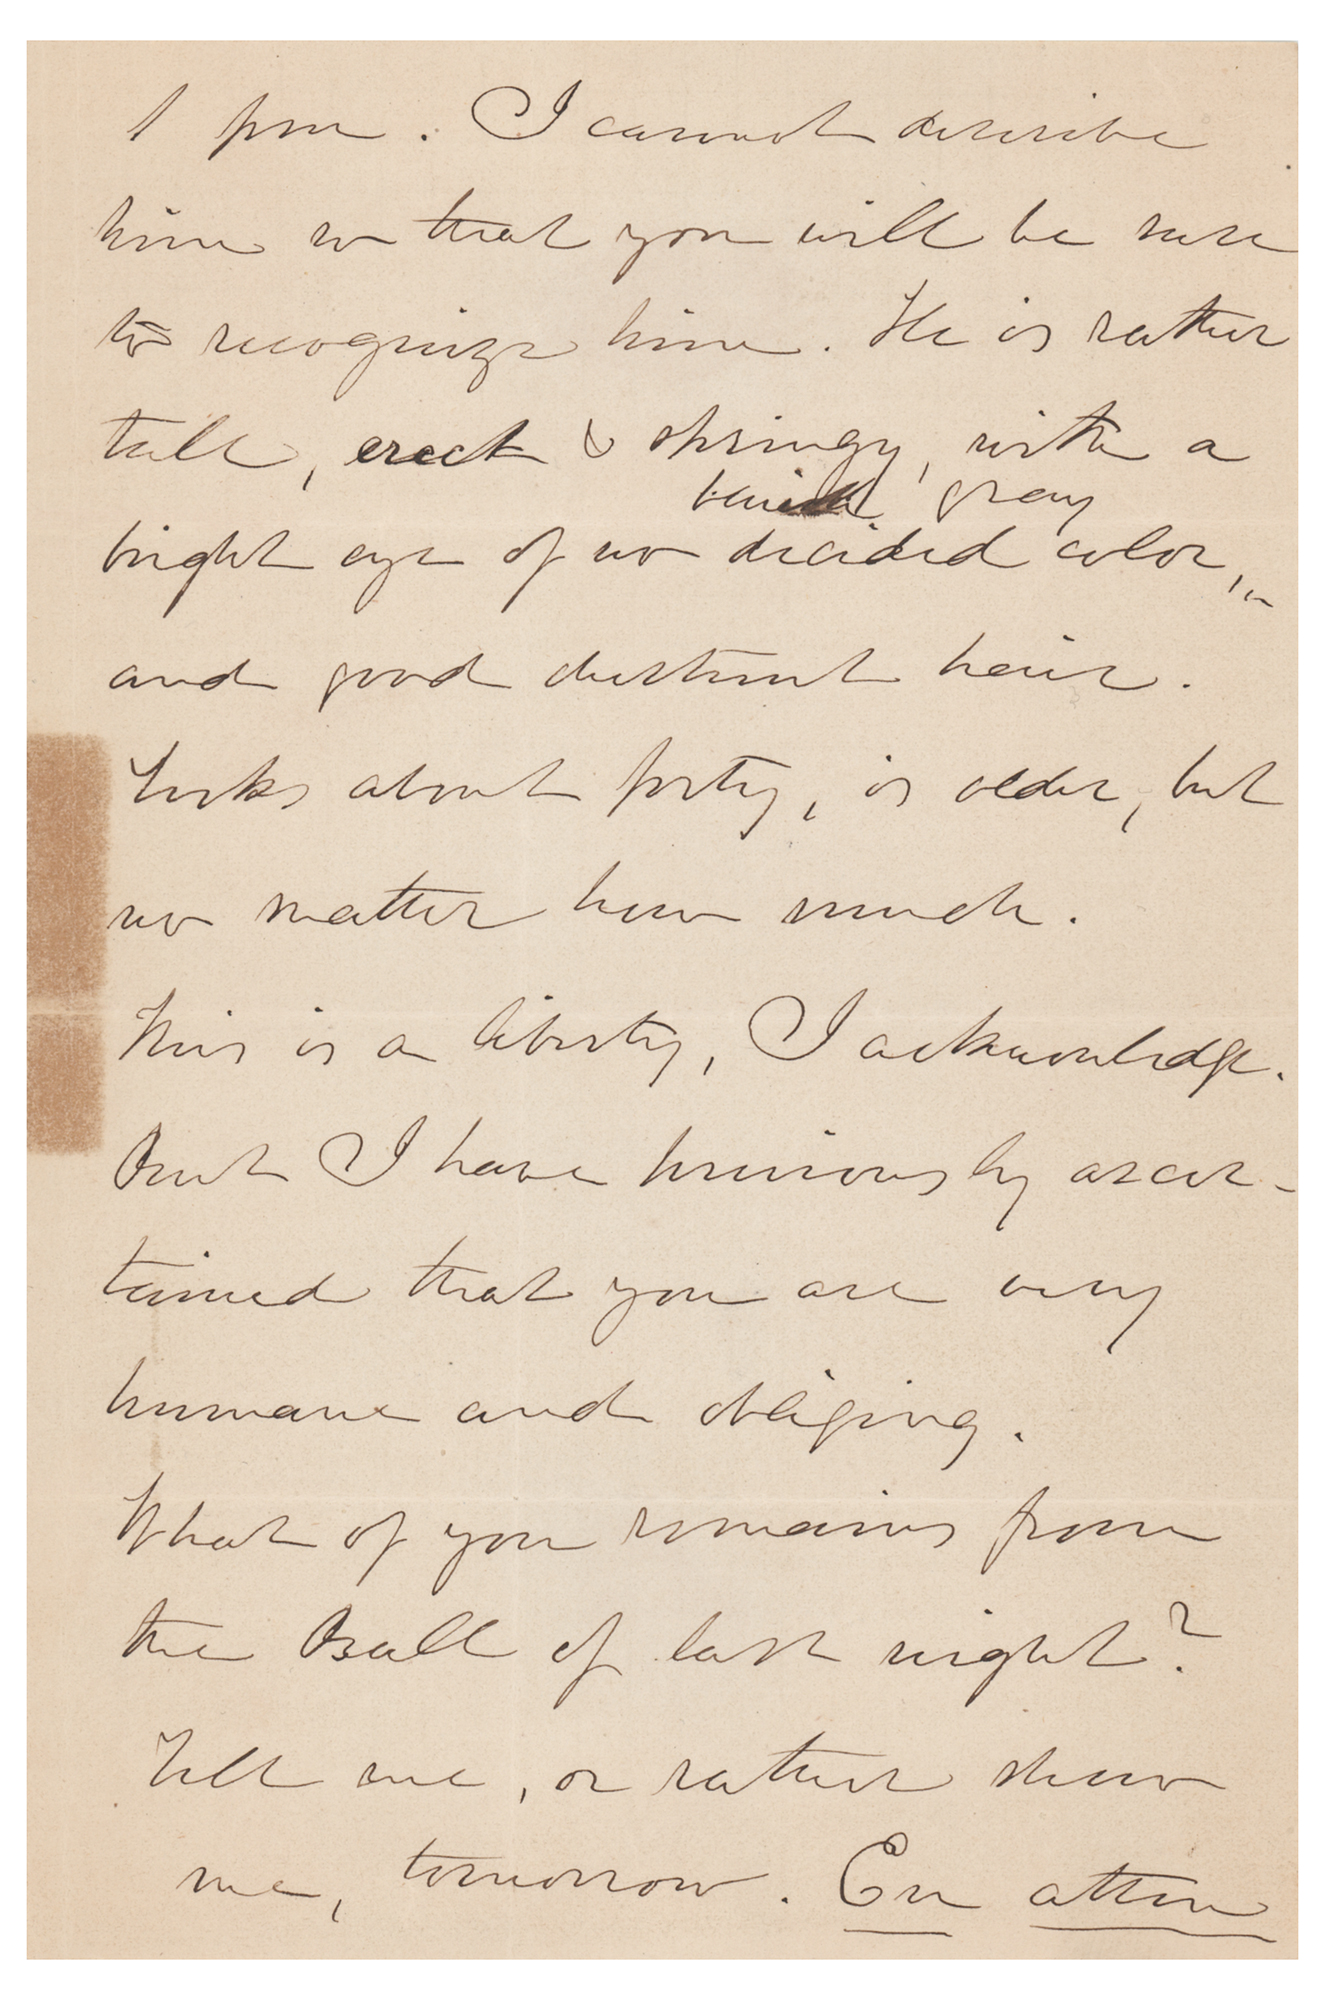 1 pm. I cannot describe
him so that you will be sure
to recognize him. He is rather
tall, erect & springy, with a
gray
bright eye of no decided color,
and good chestnut hair.
Looks about forty, is older, but
no matter how much.
This is a liberty, I acknowledge.
But I have previously ascer-
tained that you are very
humane and obliging.
What of you remains from
the Ball of last night?
Tell me, or rather show
me, tomorrow. En atten